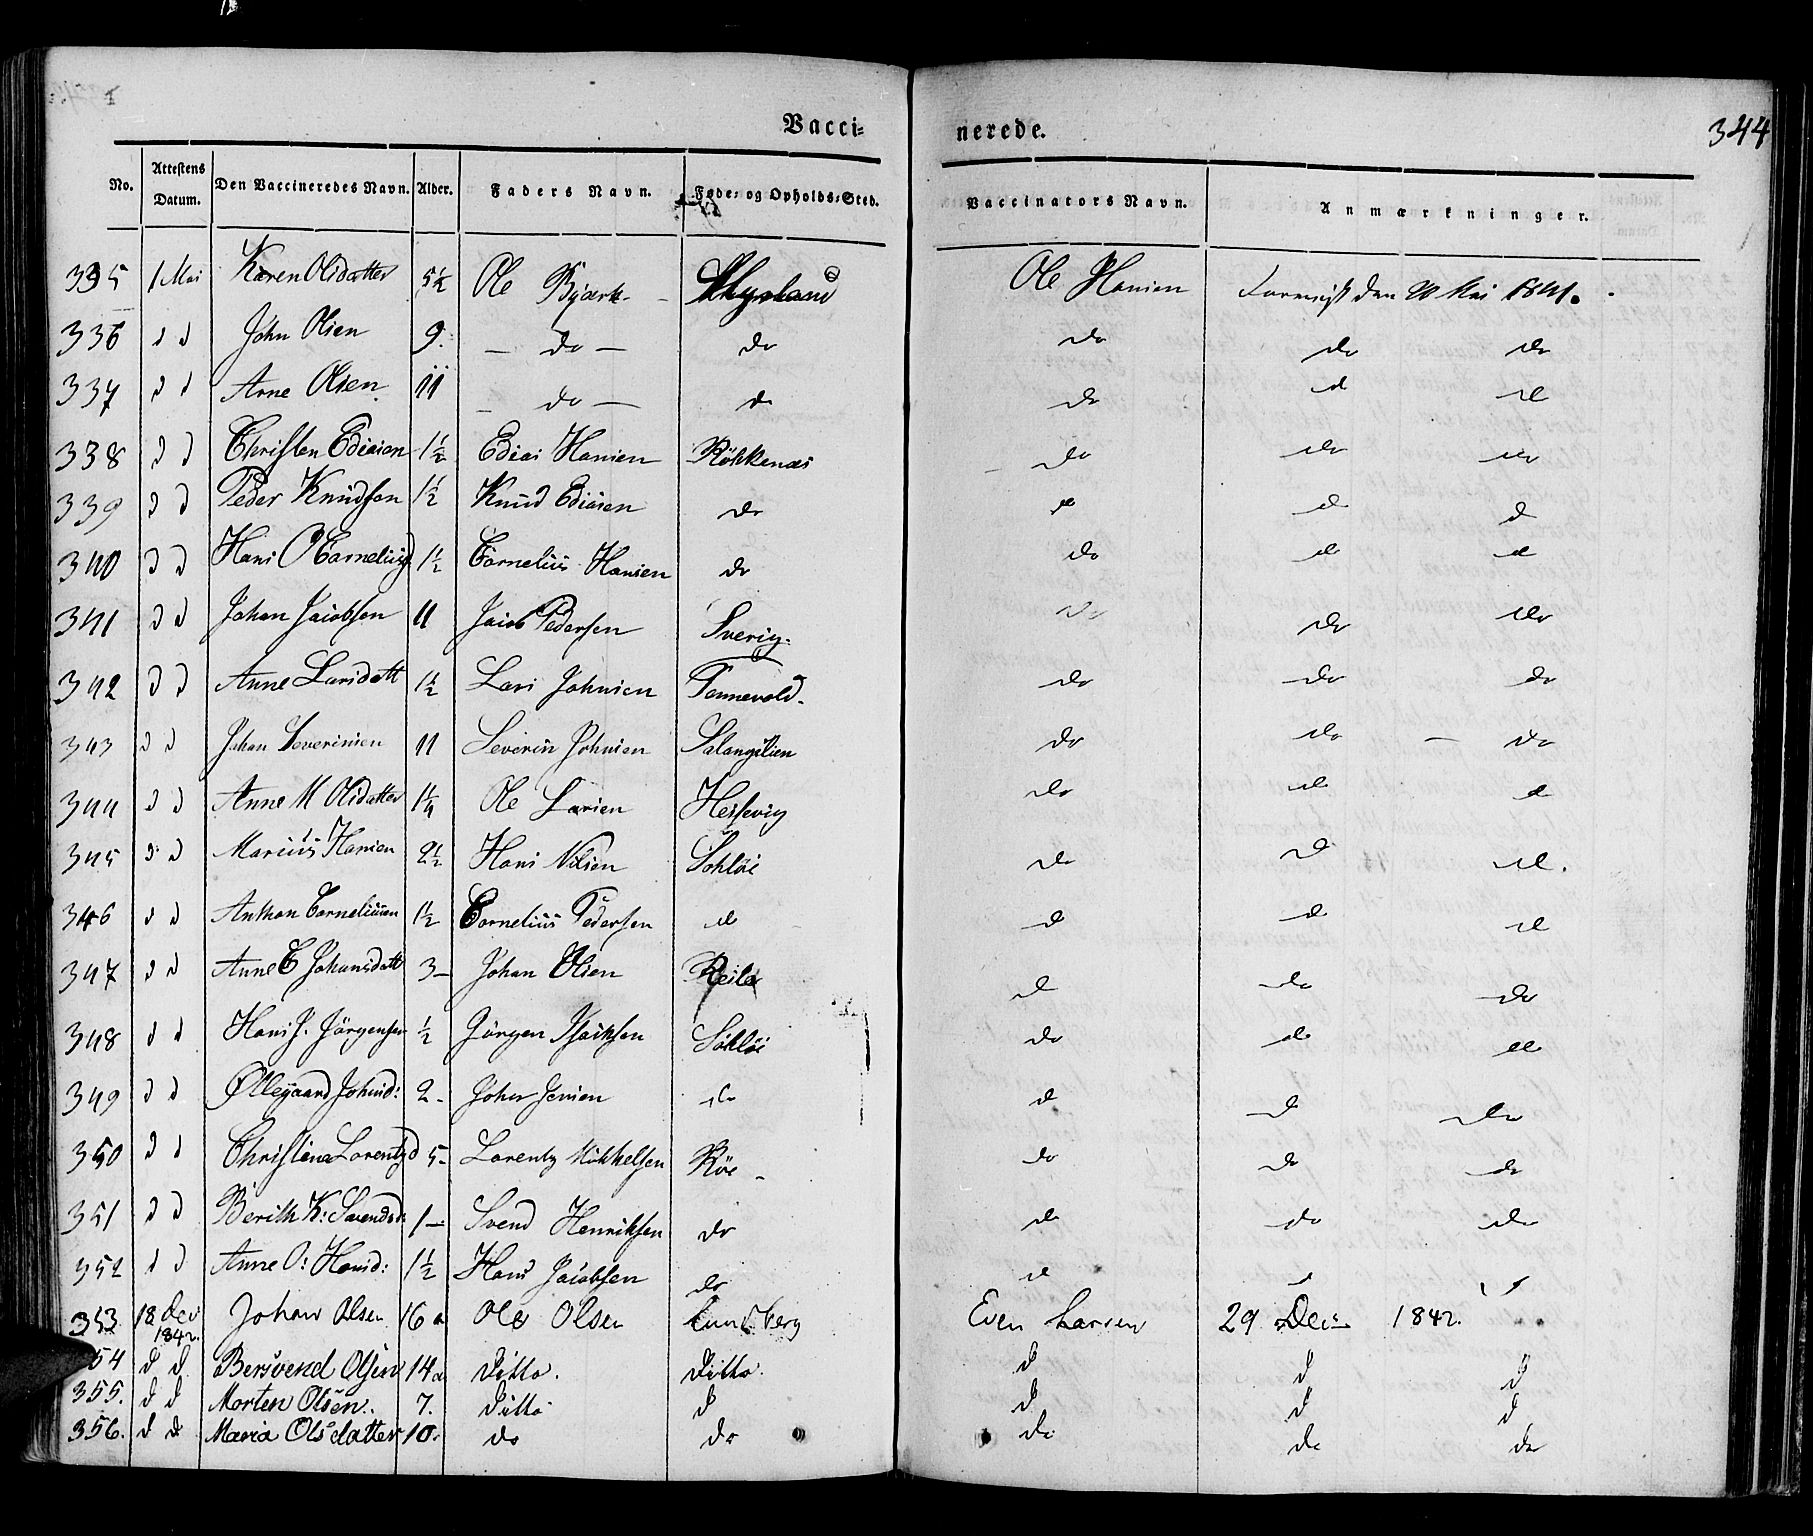 Vacci= nerede. 344
No. Attestens Datum. Den Vaccineredes Navn. Alder. Faders Navn. Føde= og Opholds=Sted. Vaccinators Navn. Anmærkninger.
335 1 Mai Karen Olsdatter 5½ Ole Bjørk Ole Hansen den 20 Mai 1841.
336 d d John Olsen 9. — do — do do do do
337 d d Arne Olsen 11 — do — d do d d
338 d d Christen Ediasen 1½ Edias Hansen Rökkenæs do do do
339 d d Peder Knudsen 1½ Knud Ediasen do d d d
340 d d Hans O Corneliuss 1½ Cornelius Hansen do do d d
341 d d Johan Jacobsen 11 Jacob Pedersen Sverig. do do do
342 d d Anne Larsdatt 1½ Lars Johnsen Tennevold. do do do
343 d d Johan Severinsen 11 Severin Johnsen Salangslien do do — do
344 d d Anne M Olsdatter 1¼ Ole Larsen Hessevig do d d
345 d d Marius Hansen 2½ Hans Nilsen Sohløi do d d.
346 d d Anthon Corneliussen 1½ Cornelius Pedersen d d d d
347 d d Anne C Johansdatt 3– Johan Olsen d do do
348 d d Hans J. Jörgensen ½ Jörgen Isaksen Sohløi do d d
349 d d Øllegaard Johnsd: 2– Johs Jensen do d d do
350 d d Christina Lorentzd 5– Lorentz Mikkelsen Röe – do do do
351 d d Berith K: Svendsd: 1– Svend Henriksen do do do do
352 d d Anne O: Hansd: 1½ Hans Jacobsen do d
353. 18 Dec 1842. Johan Olsen 16 a Ole Olsen Lundberg Even Larsen 29 Dec 1842.
354 d d Bersvend Olsen 14 a Ditto. Ditto. d d d
355. d d Morten Olsen. 7. Ditto d d d d
356. d d Maria Olsdatter 10. do do do do do